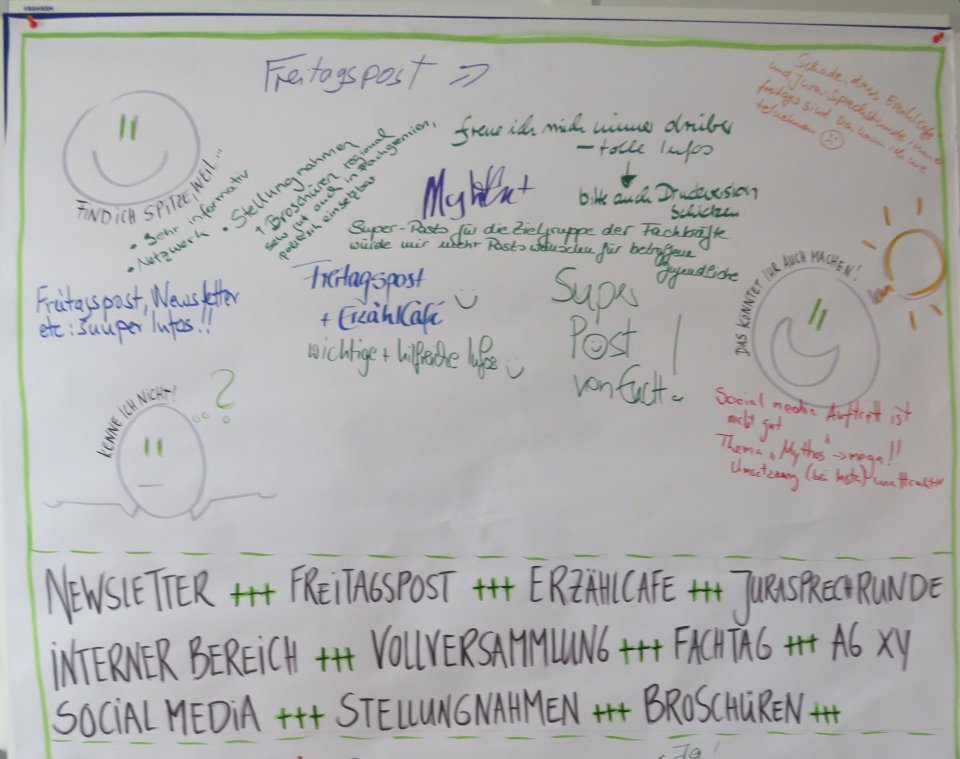 Freitagspost =>
freue ich mich immer drüber
- tolle Infos
bitte auch Druckversion
schicken
Schade, dass Erzählcafé
und Jura-Sprechstunde immer
freitags sind. Da kann ich nie
teilnehmen ☹
FIND ICH SPITZE, WEIL...
• sehr informativ
• Netzwerk
• Stellungnahmen
+ Broschüren regional
sehr gut auch in Fachgremien,
einsetzbar
Super-Posts für die Zielgruppe der Fachkräfte
würde mir mehr Posts wünschen für betroffene
Jugendliche
Freitagspost, Newsletter
etc: suuper Infos!!
Freitagspost
+ Erzählcafé
wichtige + hilfreiche Infos
Super
Post !
von Euch
DAS KÖNNTET IHR AUCH MACHEN!
Social media Auftritt ist
nicht gut
Thema "Mythos" → mega!!
Umsetzung (bei Insta) unattraktiv
KENNE ICH NICHT!
?
NEWSLETTER +++ FREITAGSPOST +++ ERZÄHLCAFE +++ JURASPRECHRUNDE
INTERNER BEREICH +++ VOLLVERSAMMLUNG +++ FACHTAG +++ AG XY
SOCIAL MEDIA +++ STELLUNGNAHMEN +++ BROSCHÜREN +++
Ja!